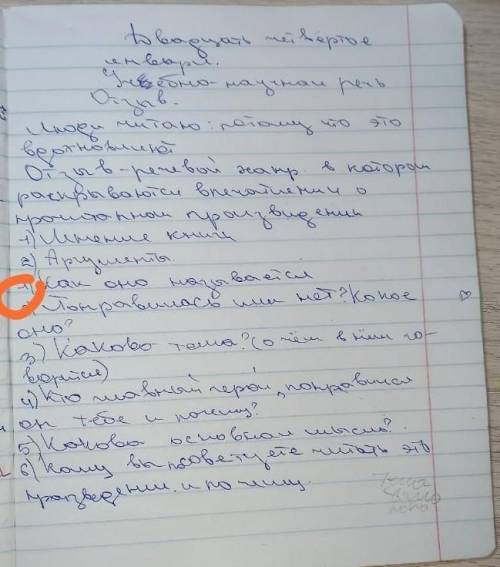 Двадцать четвёртое
января.
Учебно-научная речь
Отзыв.
Люди читаю: потому что это
вдохновляют
Отзыв-речевой жанр в котором
раскрываются впечатлении о
прочитанном произведении
1) Мнение книги
2) Аргументы.
1) Как оно называется
Понравилась или нет? Какое
оно?
3) Какова тема? (о чём в нём го-
ворится)
4) Кто главный герой, понравился
он тебе и почему?
5) Какова основная мысль?
6) Кому вы посоветуете читать это
произведении и почему.